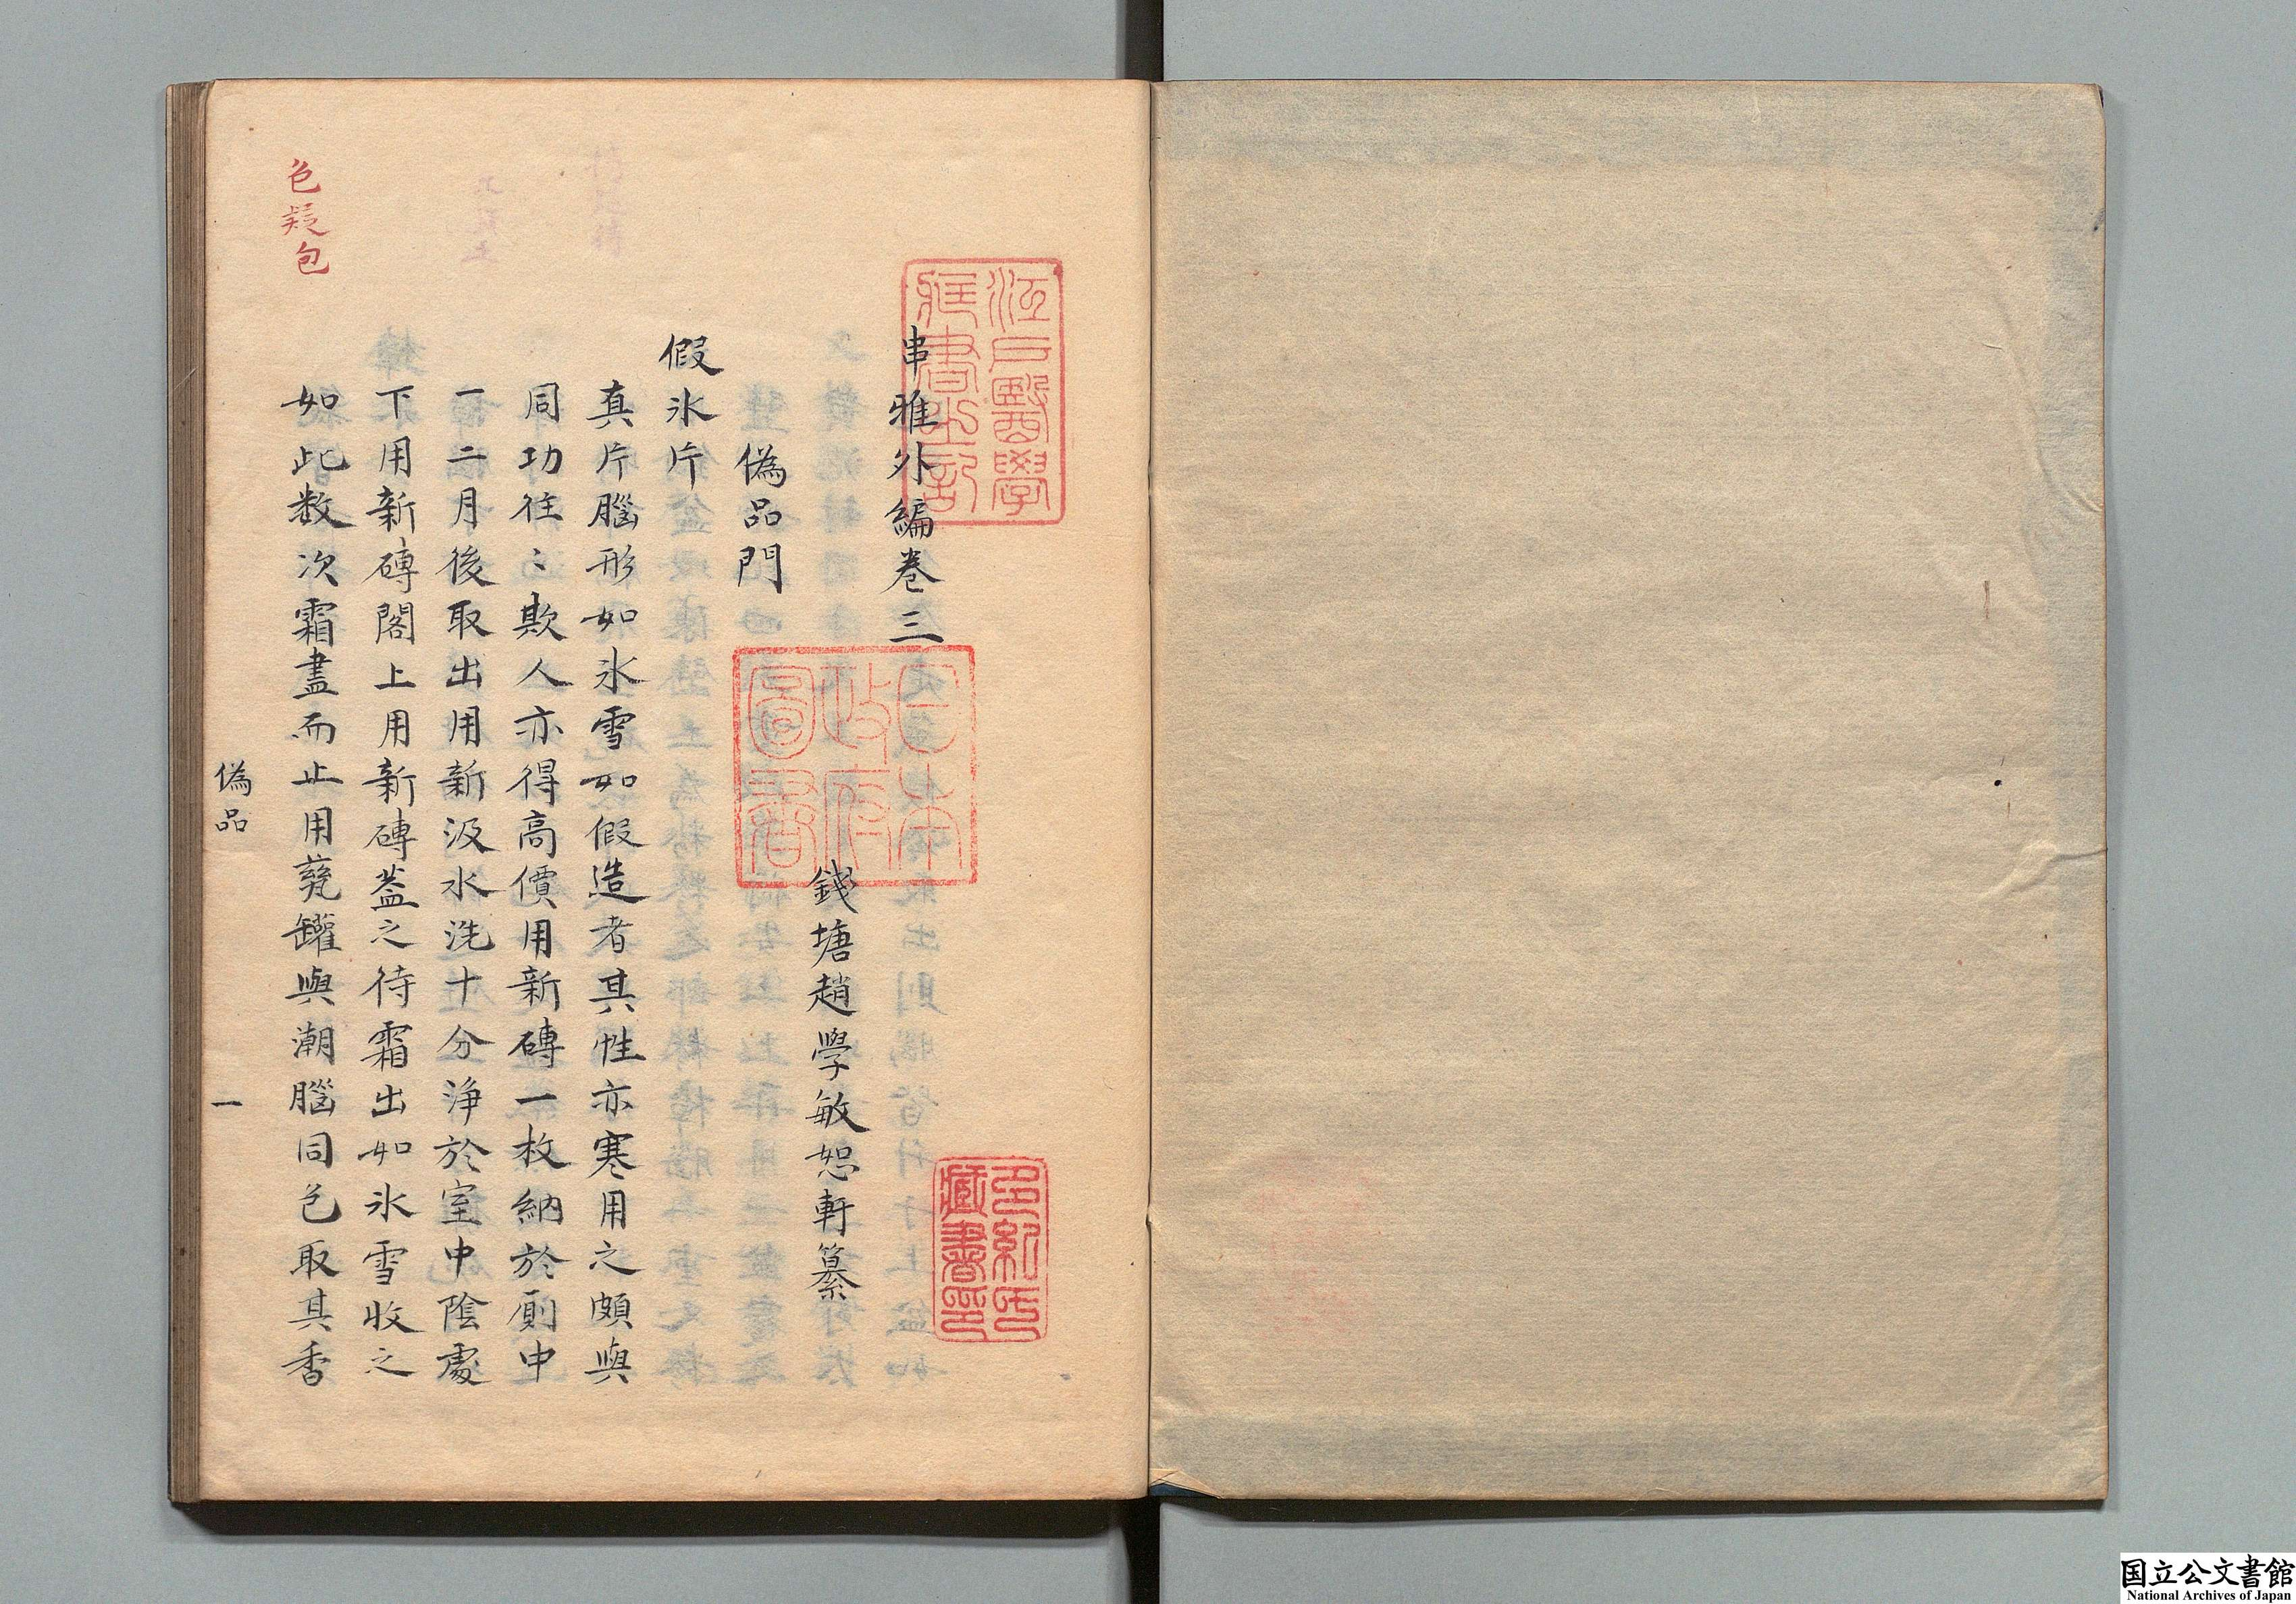 串雅外編卷三
錢塘趙學敏恕軒纂
偽品門
假氷片
真片腦形如氷雪如假造者其性亦寒用之頗與
同功往〻欺人亦得高價用新磚一枚納於厠中
一二月後取出用新汲水洗十分淨於室中陰處
下用新磚閣上用新磚蓋之待霜出如氷雪收之
如此数次霜盡而止用甆罐與潮腦同色取其香
色疑包
偽品
一
江戸醫學
藏書之記
日本
政府
圖書
多紀氏
藏書印
国立公文書館
National Archives of Japan